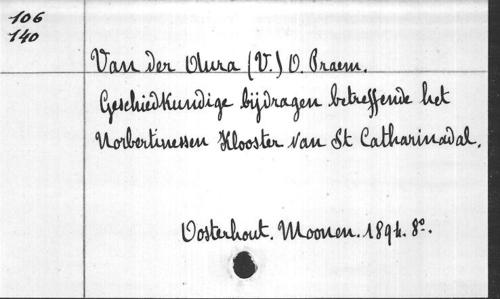 106
140
Van der Aura (V.) O. Praem.
Geschiedkundige bijdragen betreffende het
Norbertinessen Klooster van St Catharinadal.
Oosterhout. Moonen. 1894. 8°.